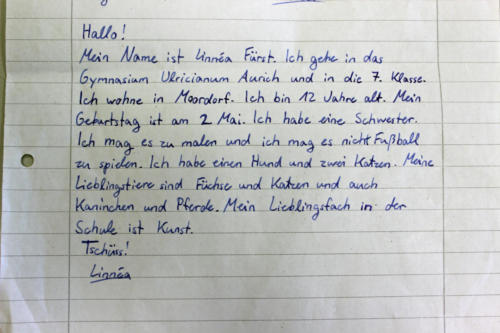 Hallo!
Mein Name ist Linnéa Fürst. Ich gehe in das
Gymnasium Ulricianum Aurich und in die 7. Klasse.
Ich wohne in Moordorf. Ich bin 12 Jahre alt. Mein
Geburtstag ist am 2 Mai. Ich habe eine Schwester.
Ich mag es zu malen und ich mag es nicht Fußball
zu spielen. Ich habe einen Hund und zwei Katzen. Meine
Lieblingstiere sind Füchse und Katzen und auch
Kaninchen und Pferde. Mein Lieblingsfach in der
Schule ist Kunst.
Tschüss!
Linnéa